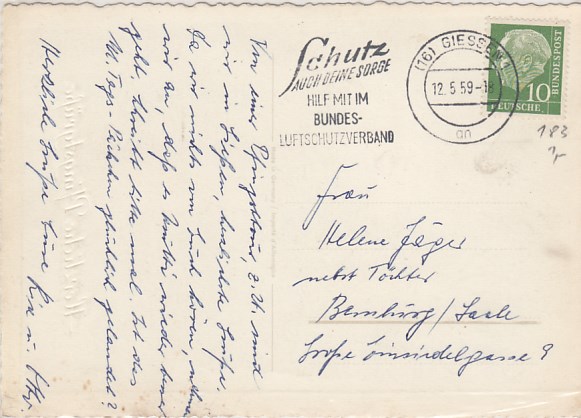 Von einer Pfingsttour, z. Zt. sind
wir in Gießen, herzlichste Grüße.
Da wir nichts von Euch hören, nehmen
wir an, daß es Mutti wieder besser
geht. Schreibt bitte mal. Ist das
M. Tags-Päckchen glücklich gelandet?
Herzliche Grüße Eure
Schutz
AUCH DEINE SORGE
HILF MIT IM
BUNDES-
LUFTSCHUTZVERBAND
(16) GIESSEN 1
12.5.59-18
an
DEUTSCHE BUNDESPOST
10
183
1,-
Frau
Helene Jäger
nebst Töchter
Bernburg/Saale
Große Einsiedelgasse 9